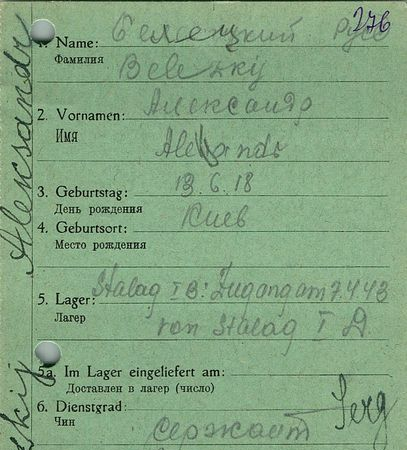 276
1. Name: Белецкий Русс
Фамилия
Beletzkij
2. Vornamen: Александр
ИМЯ
Aleksandr
3. Geburtstag: 13.6.18
День рождения
4. Geburtsort: Киев
Место рождения
Stalag I B: Zugang am 7.4.43
5. Lager: von Stalag I A
Лагерь
5a. Im Lager eingeliefert am:
Доставлен в лагерь (число)
6. Dienstgrad: Serg
Чин
Сержант
Aleksandr
skij